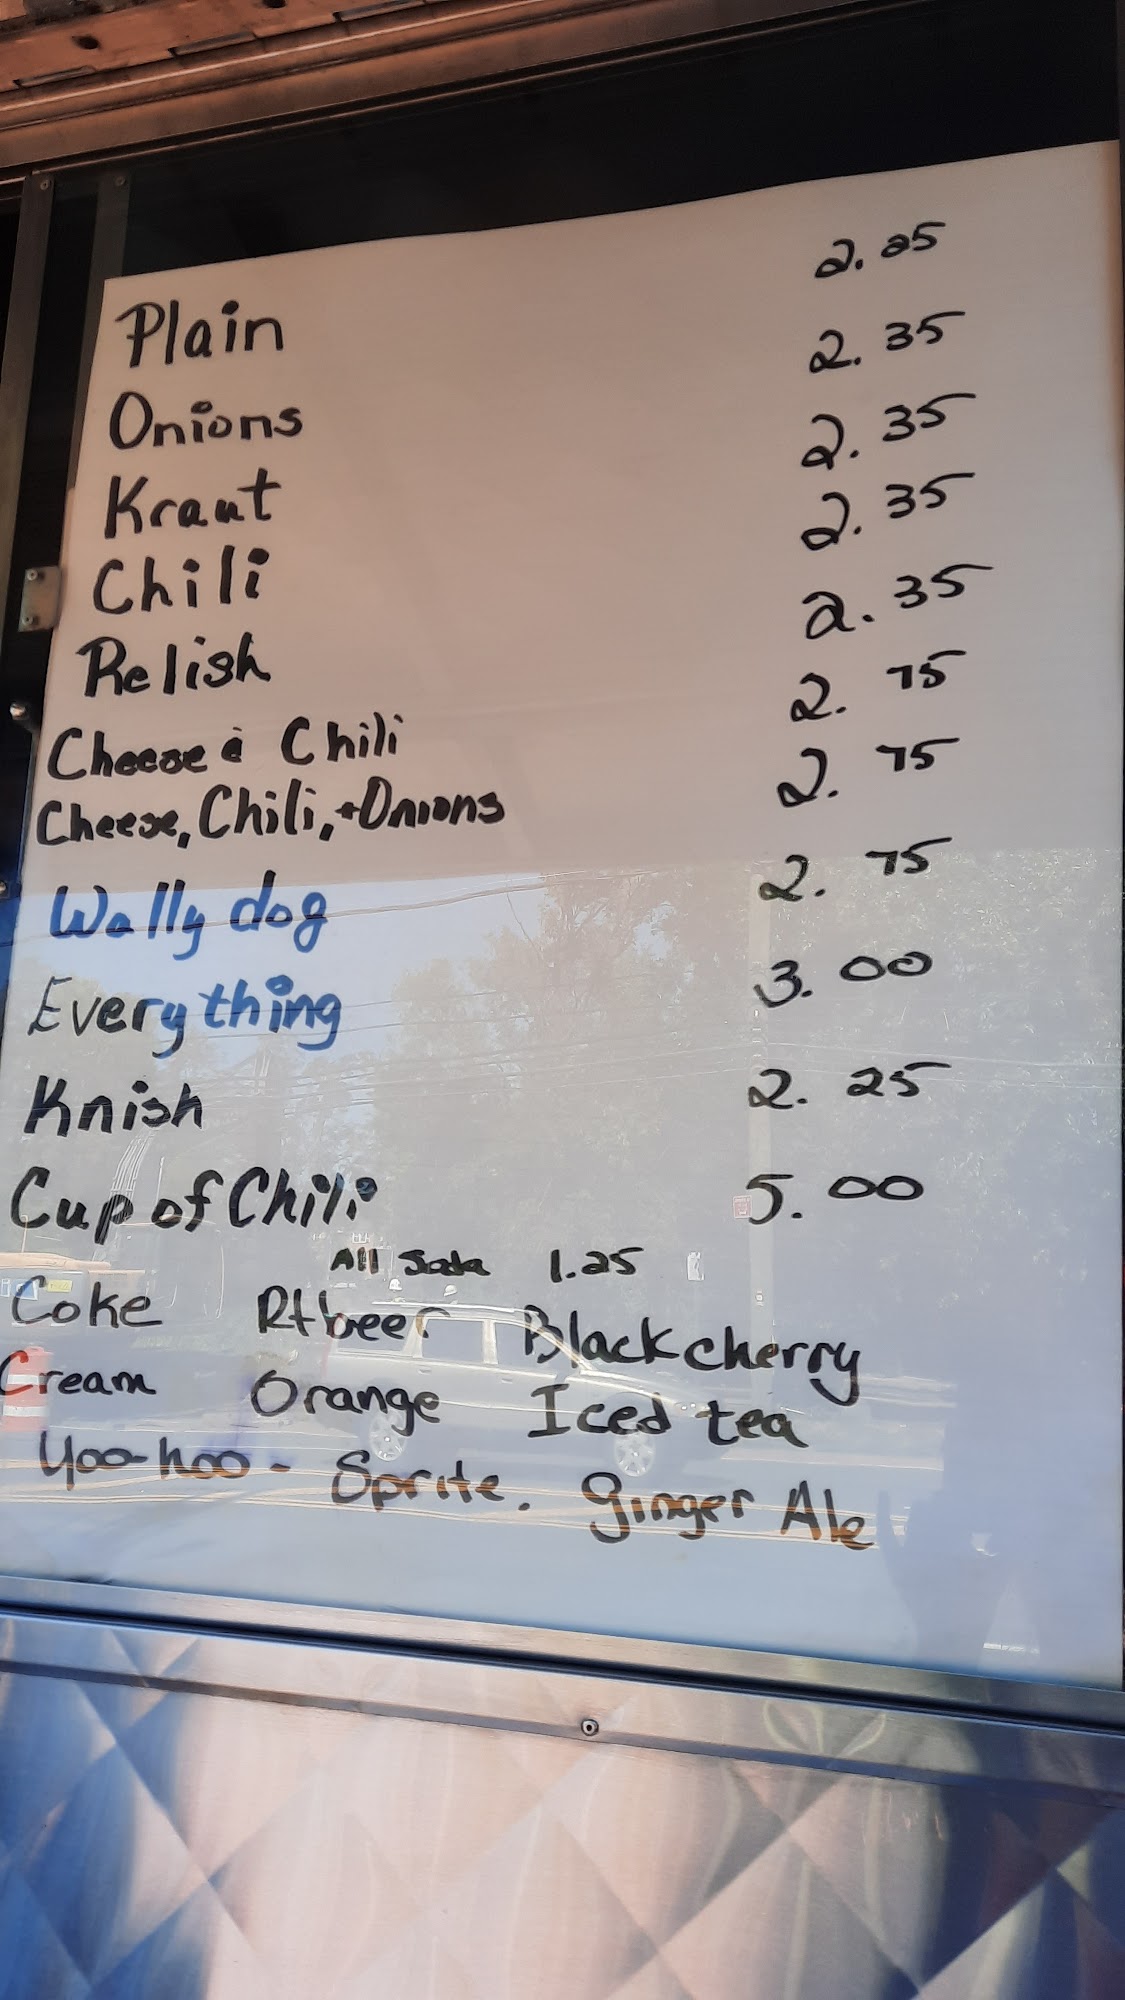 Plain 2.25
Onions 2.35
Kraut 2.35
Chili 2.35
Relish 2.35
Cheese & Chili 2.75
Cheese, Chili, + Onions 2.75
Wally dog 2.75
Everything 3.00
Knish 2.25
Cup of Chili 5.00
All Soda 1.25
Coke Rtbeer Blackcherry
Cream Orange Iced tea
Yoo-hoo - Sprite. Ginger Ale